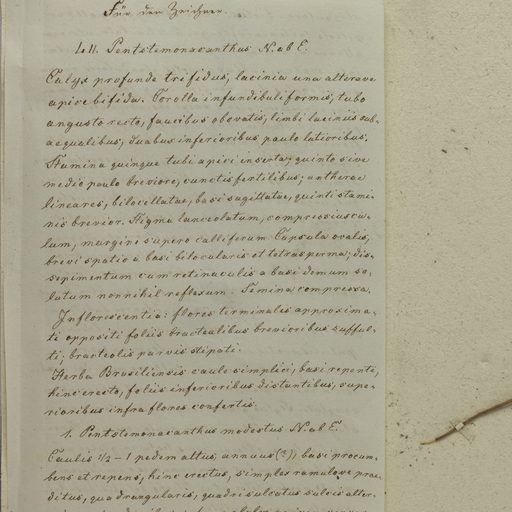 Für den Zeichner.
Pentstemonacanthus N. ab E.
Calyx profunde trifidus, lacinia una alterave
apice bifida. Corolla infundibuliformis, tubo
angusto recto, faucibus obovatis, limbi laciniis sub-
aequalibus, duabus inferioribus paulo latioribus.
Stamina quinque tubi apici inserta, quinto sive
medio paulo breviore, cunctis fertilibus; antherae
lineares, bilocellatae, basi sagittatae, quinti stami-
nis brevior. Stigma lanceolatum, compressiuscu-
lum, margine supero calliferum. Capsula ovalis,
brevi spatio a basi bilocularis et tetrasperma; dis-
sepimentum cum retinaculis a basi demum so-
lutum nonnihil reflexum. Semina compressa.
Inflorescentia: flores terminales approxima-
ti oppositi foliis bractealibus brevioribus sufful-
ti; bracteolis parvis stipati.
Herba Brasiliensis caule simplici, basi repenti,
hinc erecto, foliis inferioribus distantibus, supe-
rioribus infra flores confertis.
1. Pentstemonacanthus modestus N. ab E.
Caulis 1/2 - 1 pedem altus, annuus (?), basi procum-
bens et repens, hinc erectus, simplex ramulove prae-
ditus, quadrangularis, quadrisulcatus sulcis alter-